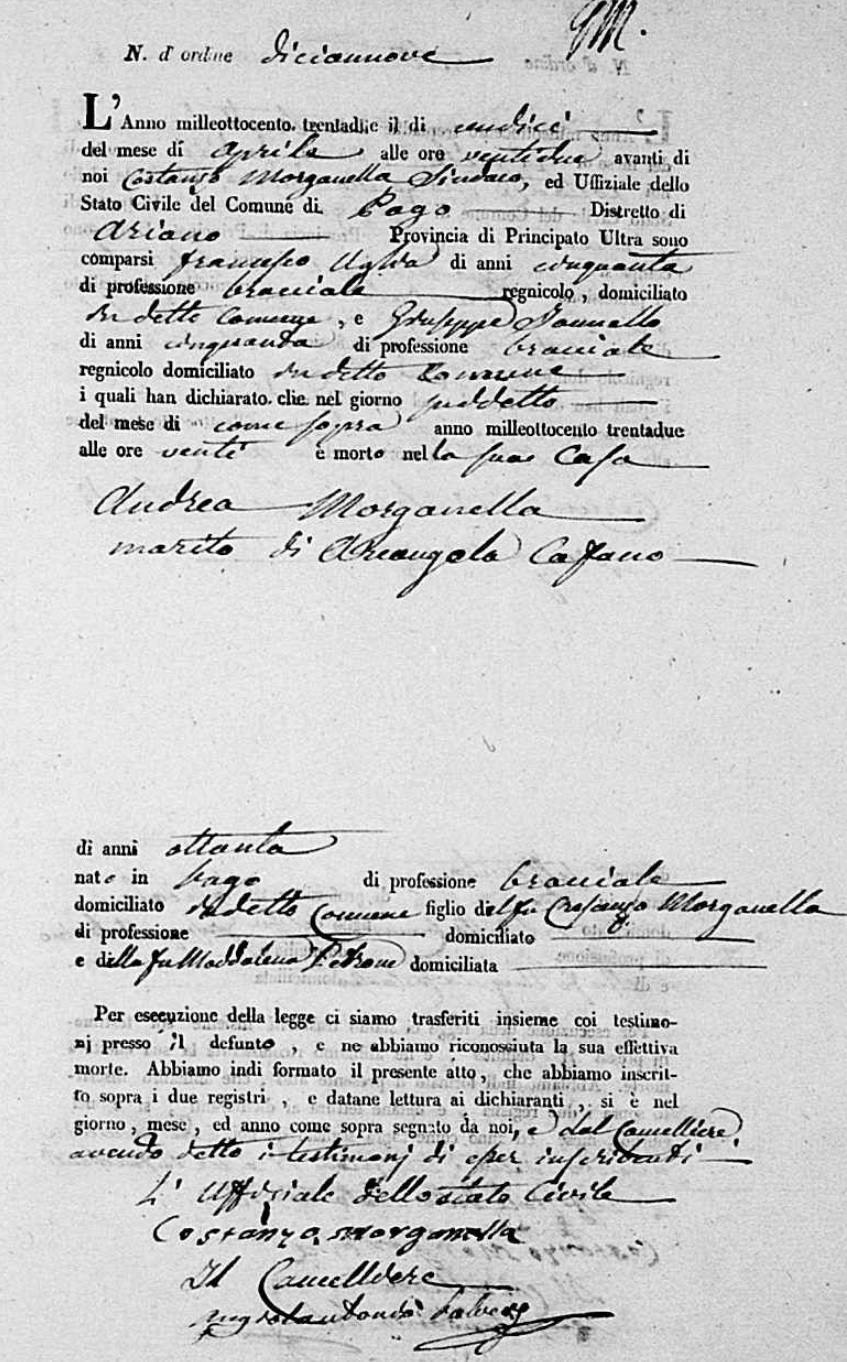 GM.
N. d' ordine diciannove
L'Anno milleottocento trentadue il di undici
del mese di Aprile alle ore ventidue avanti di
noi Costanzo Morganella Sindaco, ed Uffiziale dello
Stato Civile del Comune di Pago Distretto di
Ariano Provincia di Principato Ultra sono
comparsi Francesco di anni cinquanta
di professione bracciale regnicolo, domiciliato
in detto Comune, e Giuseppe Iannello
di anni cinquanta di professione bracciale
regnicolo domiciliato in detto Comune
i quali han dichiarato. che nel giorno suddetto
del mese di come sopra anno milleottocento trentadue
alle ore venti è morto nella sua Casa
Andrea Morganella
marito di Arcangela Cafano
di anni ottanta
nato in Pago di professione bracciale
domiciliato in detto Comune figlio del fu Crescenzo Morganella
di professione domiciliato
e della fu Maddalena Petrone domiciliata
Per esecuzione della legge ci siamo trasferiti insieme coi testimo-
nj presso il defunto, e ne abbiamo riconosciuta la sua effettiva
morte. Abbiamo indi formato il presente atto, che abbiamo inscrit-
to sopra i due registri, e datane lettura ai dichiaranti, si è nel
giorno, mese, ed anno come sopra segnato da noi, e dal Cancelliere,
avendo detto i testimonj di esser inscribenti
L' Uffiziale dello stato Civile
Costanzo Morganella
Il Cancelliere